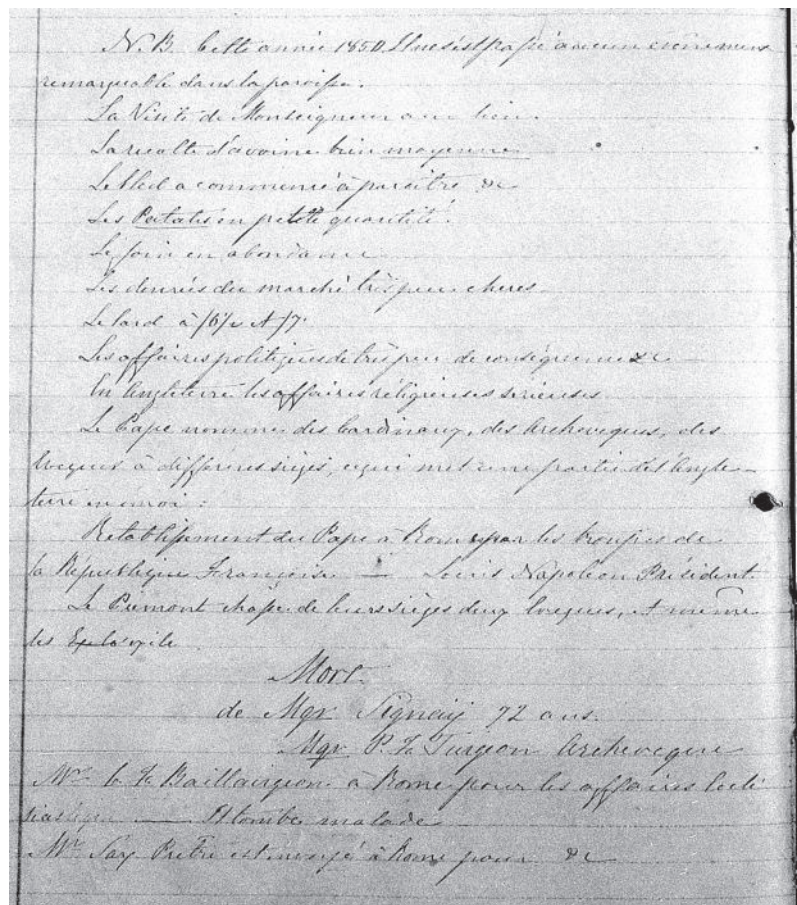 N.B. Cette année 1850. Il ne s'est passé aucun évènement
remarquable dans la paroisse.
La Visite de Monseigneur a eu lieu.
La recolte d'avoine bien moyenne
Le bled a commencé à paraître &c
Les Patates en petite quantité.
Le foin en abondance
Les denrées du marché très peu cheres
Le lard à /6/2 et /7.
Les affaires politiques de très peu de conséquence &c
En Angleterre les affaires réligieuses serieuses
Le Pape nomme des Cardinaux, des Archeveques, des
Eveques à différens sièges, ce qui met une partie de l'Angle-
terre en émoi :
Retablissement du Pape à Rome par les troupes de
la République Française — Louis Napoléon Président.
Le Piémont chasse de leurs sièges deux Eveques, et même
les Exile
Mort.
de Mgr Signaÿ 72 ans.
Mgr P. F. Turgeon Archeveque
Mr C. F. Baillairgeon à Rome pour les affaires Eccle
siastique — Et tombe malade
Mr Sax Prêtre est envoyé à Rome pour &c